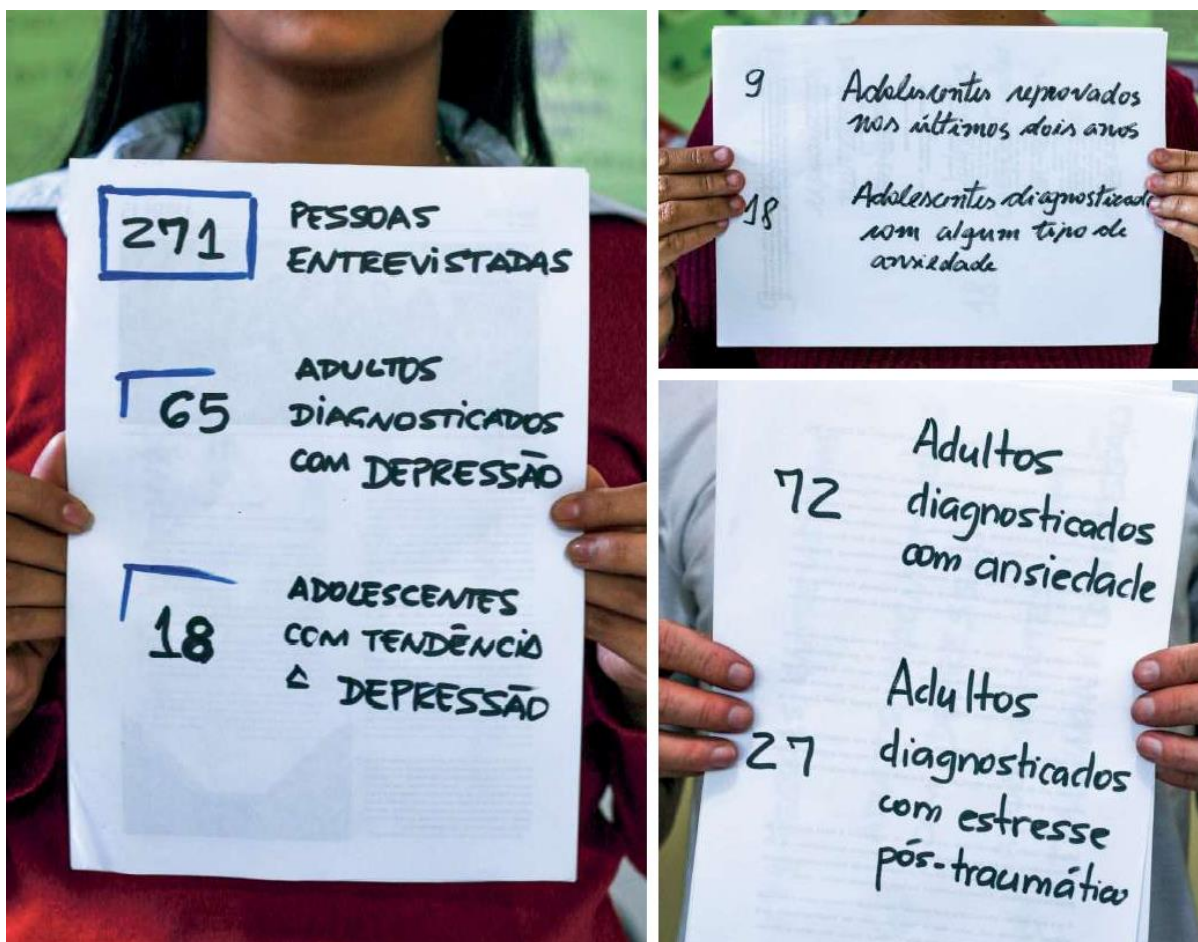 271 PESSOAS
ENTREVISTADAS
65 ADULTOS
DIAGNOSTICADOS
COM DEPRESSÃO
18 ADOLESCENTES
COM TENDÊNCIA
À DEPRESSÃO
9 Adolescentes reprovados
nos últimos dois anos
18 Adolescentes diagnosticad
com algum tipo de
ansiedade
72 Adultos
diagnosticados
com ansiedade
27 Adultos
diagnosticados
com estresse
pós-traumático